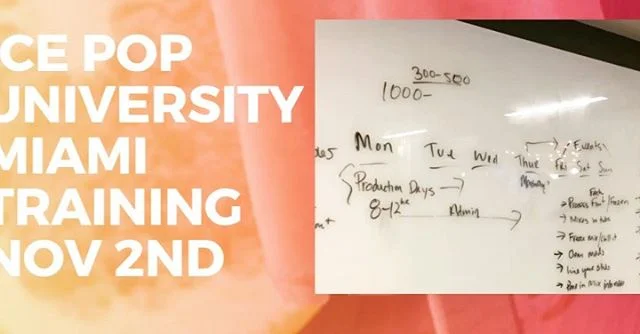 ICE POP
UNIVERSITY
MIAMI
TRAINING
NOV 2ND
300-500
1000-
Mon Tue Wed Thur Fri Sat Sun
Events
Production Days
8-12 Admin
Fresh
Process Fruit/Frozen
Mixes in tube
Freeze mix/
Clean molds
Line your sticks
Pour in Mix